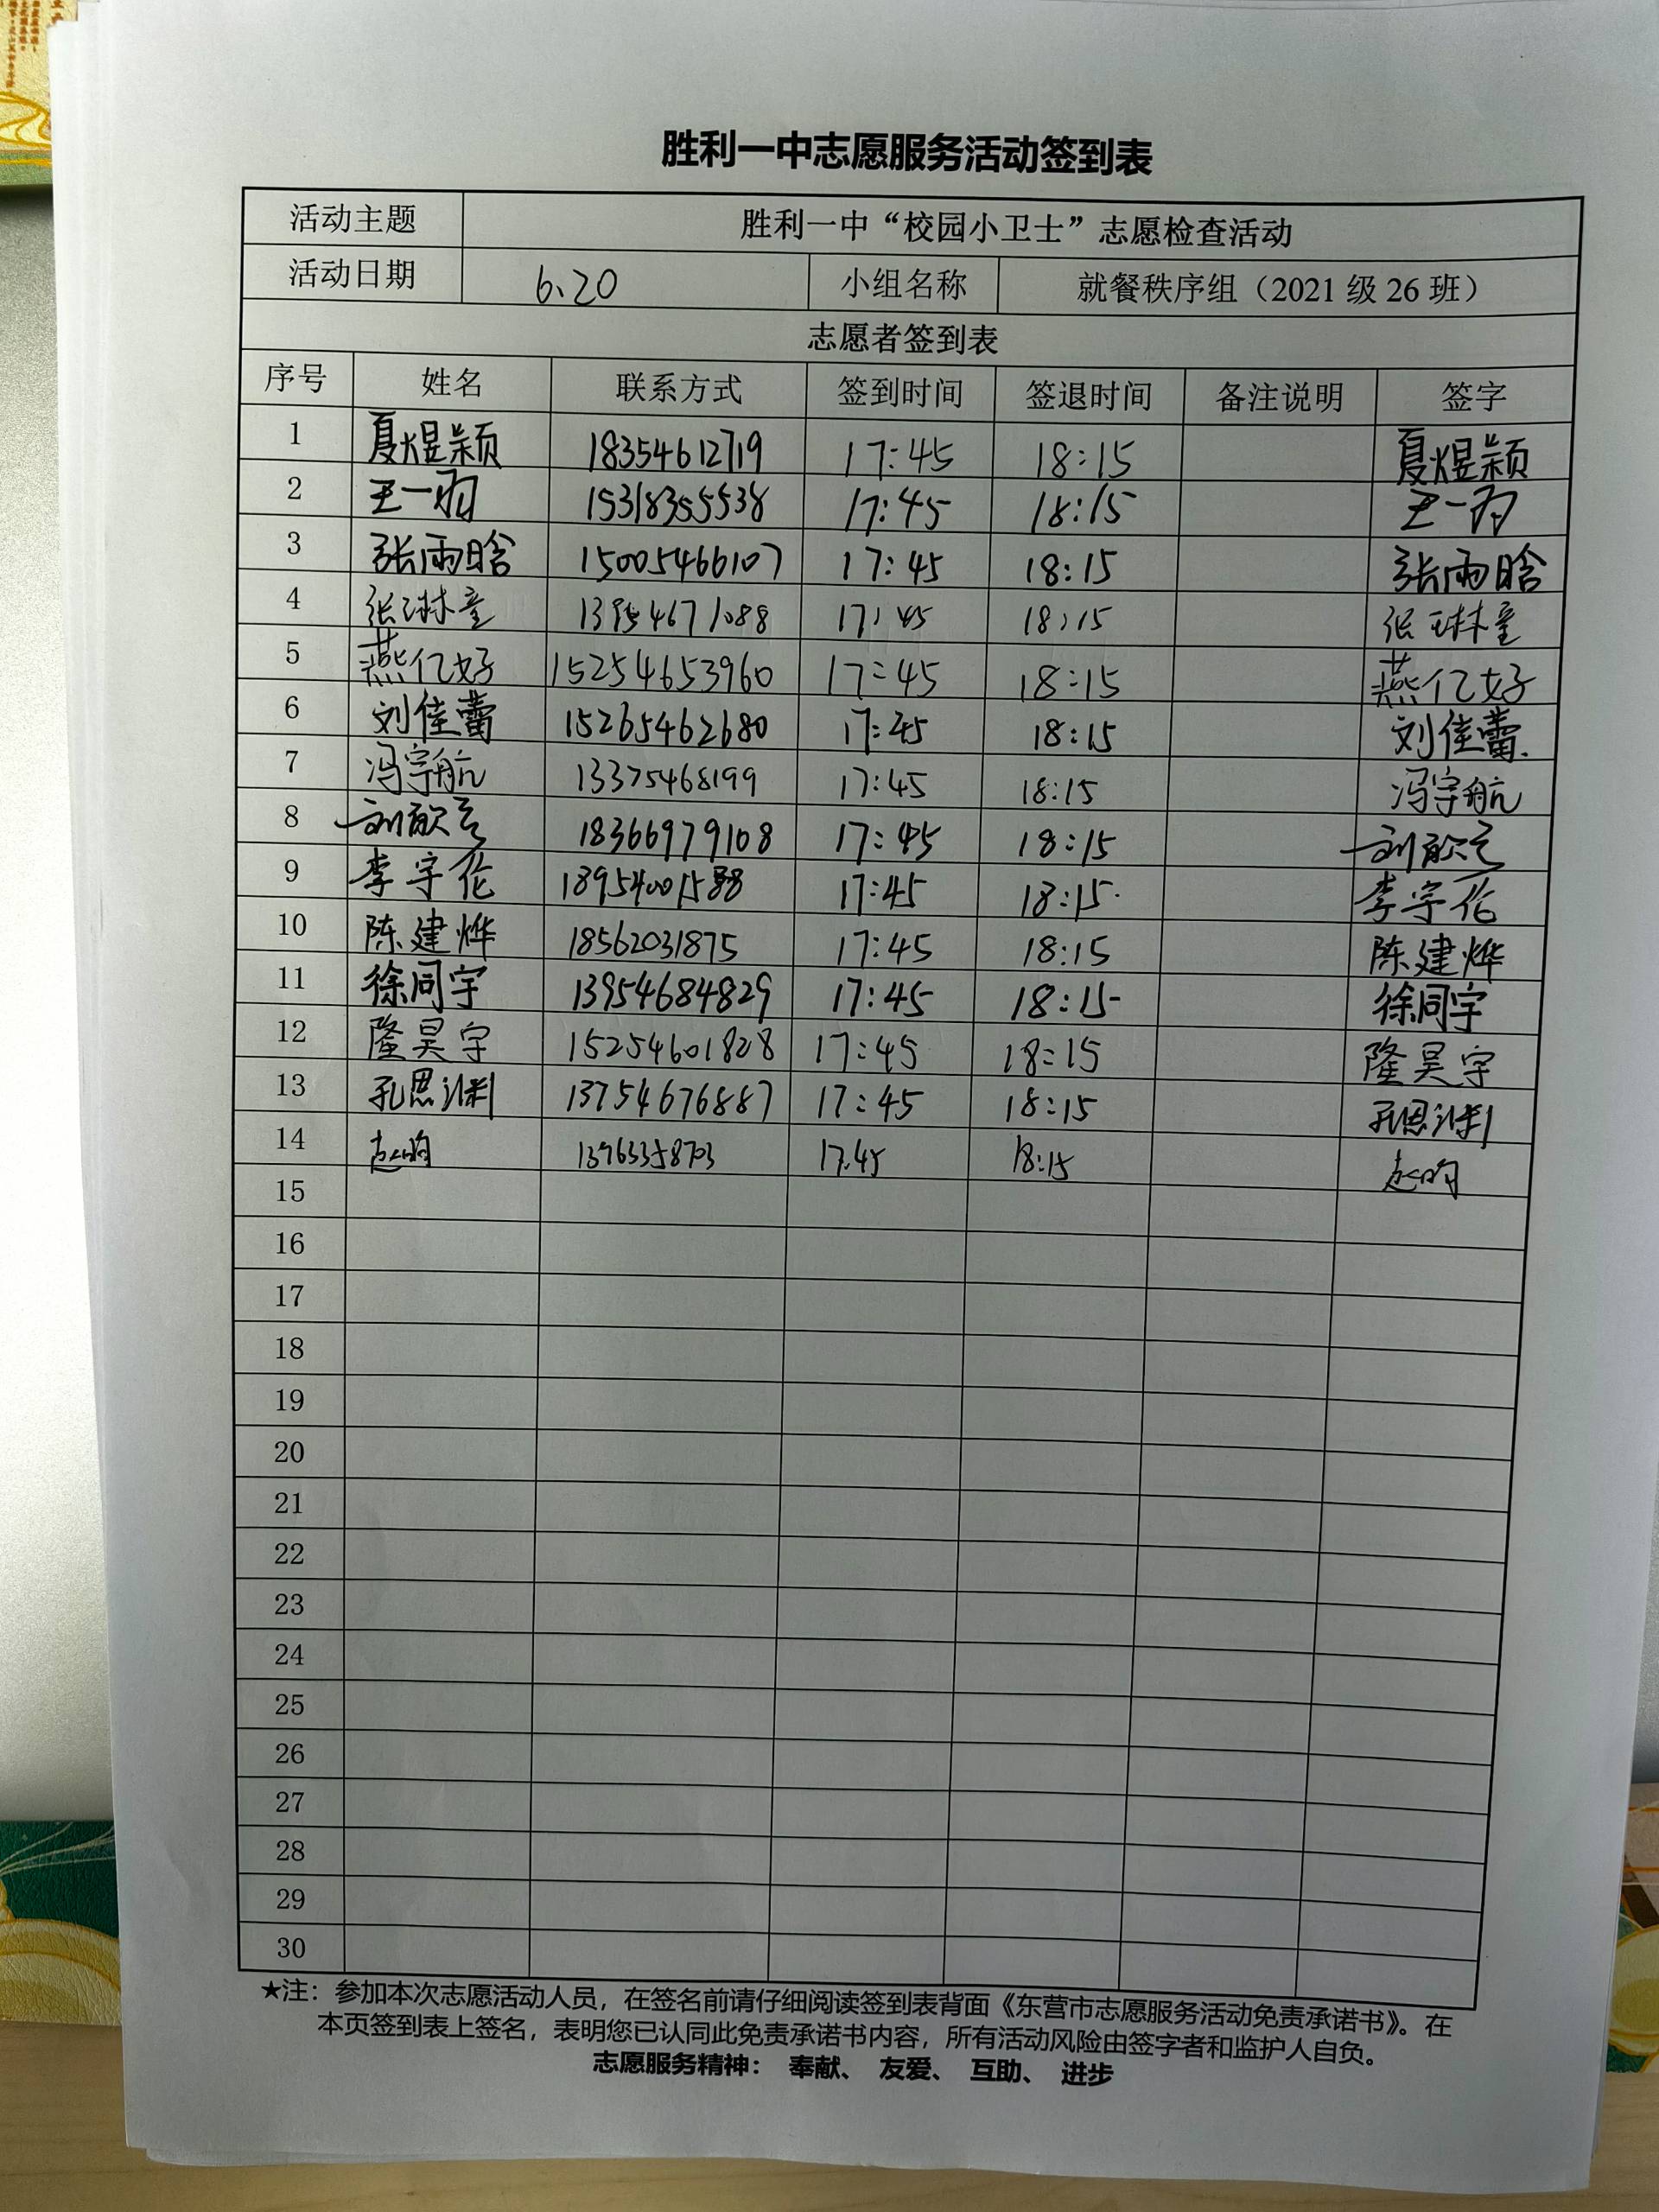 胜利一中志愿服务活动签到表
活动主题 胜利一中“校园小卫士”志愿检查活动
活动日期 6.20 小组名称 就餐秩序组（2021级26班）
志愿者签到表
序号 姓名 联系方式 签到时间 签退时间 备注说明 签字
1 夏煜颖 18354612719 17:45 18:15 夏煜颖
2 王一 15318355538 17:45 18:15 王一
3 张雨晗 15005466107 17:45 18:15 张雨晗
4 张琳童 13954671088 17:45 18:15 张琳童
5 燕亿好 15254653960 17:45 18:15 燕亿好
6 刘佳蕾 15265462680 17:45 18:15 刘佳蕾.
7 冯宇航 13375468199 17:45 18:15 冯宇航
8 刘 18366979108 17:45 18:15 刘
9 李宇伦 17:45 18:15 李宇伦
10 陈建烨 18562031875 17:45 18:15 陈建烨
11 徐同宇 13954684829 17:45 18:15 徐同宇
12 隆昊宇 15254601828 17:45 18:15 隆昊宇
13 孔恩 13754676887 17:45 18:15 孔恩
14 赵昀 17:45 18:15 赵昀
15
16
17
18
19
20
21
22
23
24
25
26
27
28
29
30
★注：参加本次志愿活动人员，在签名前请仔细阅读签到表背面《东营市志愿服务活动免责承诺书》。在
本页签到表上签名，表明您已认同此免责承诺书内容，所有活动风险由签字者和监护人自负。
志愿服务精神： 奉献、 友爱、 互助、 进步